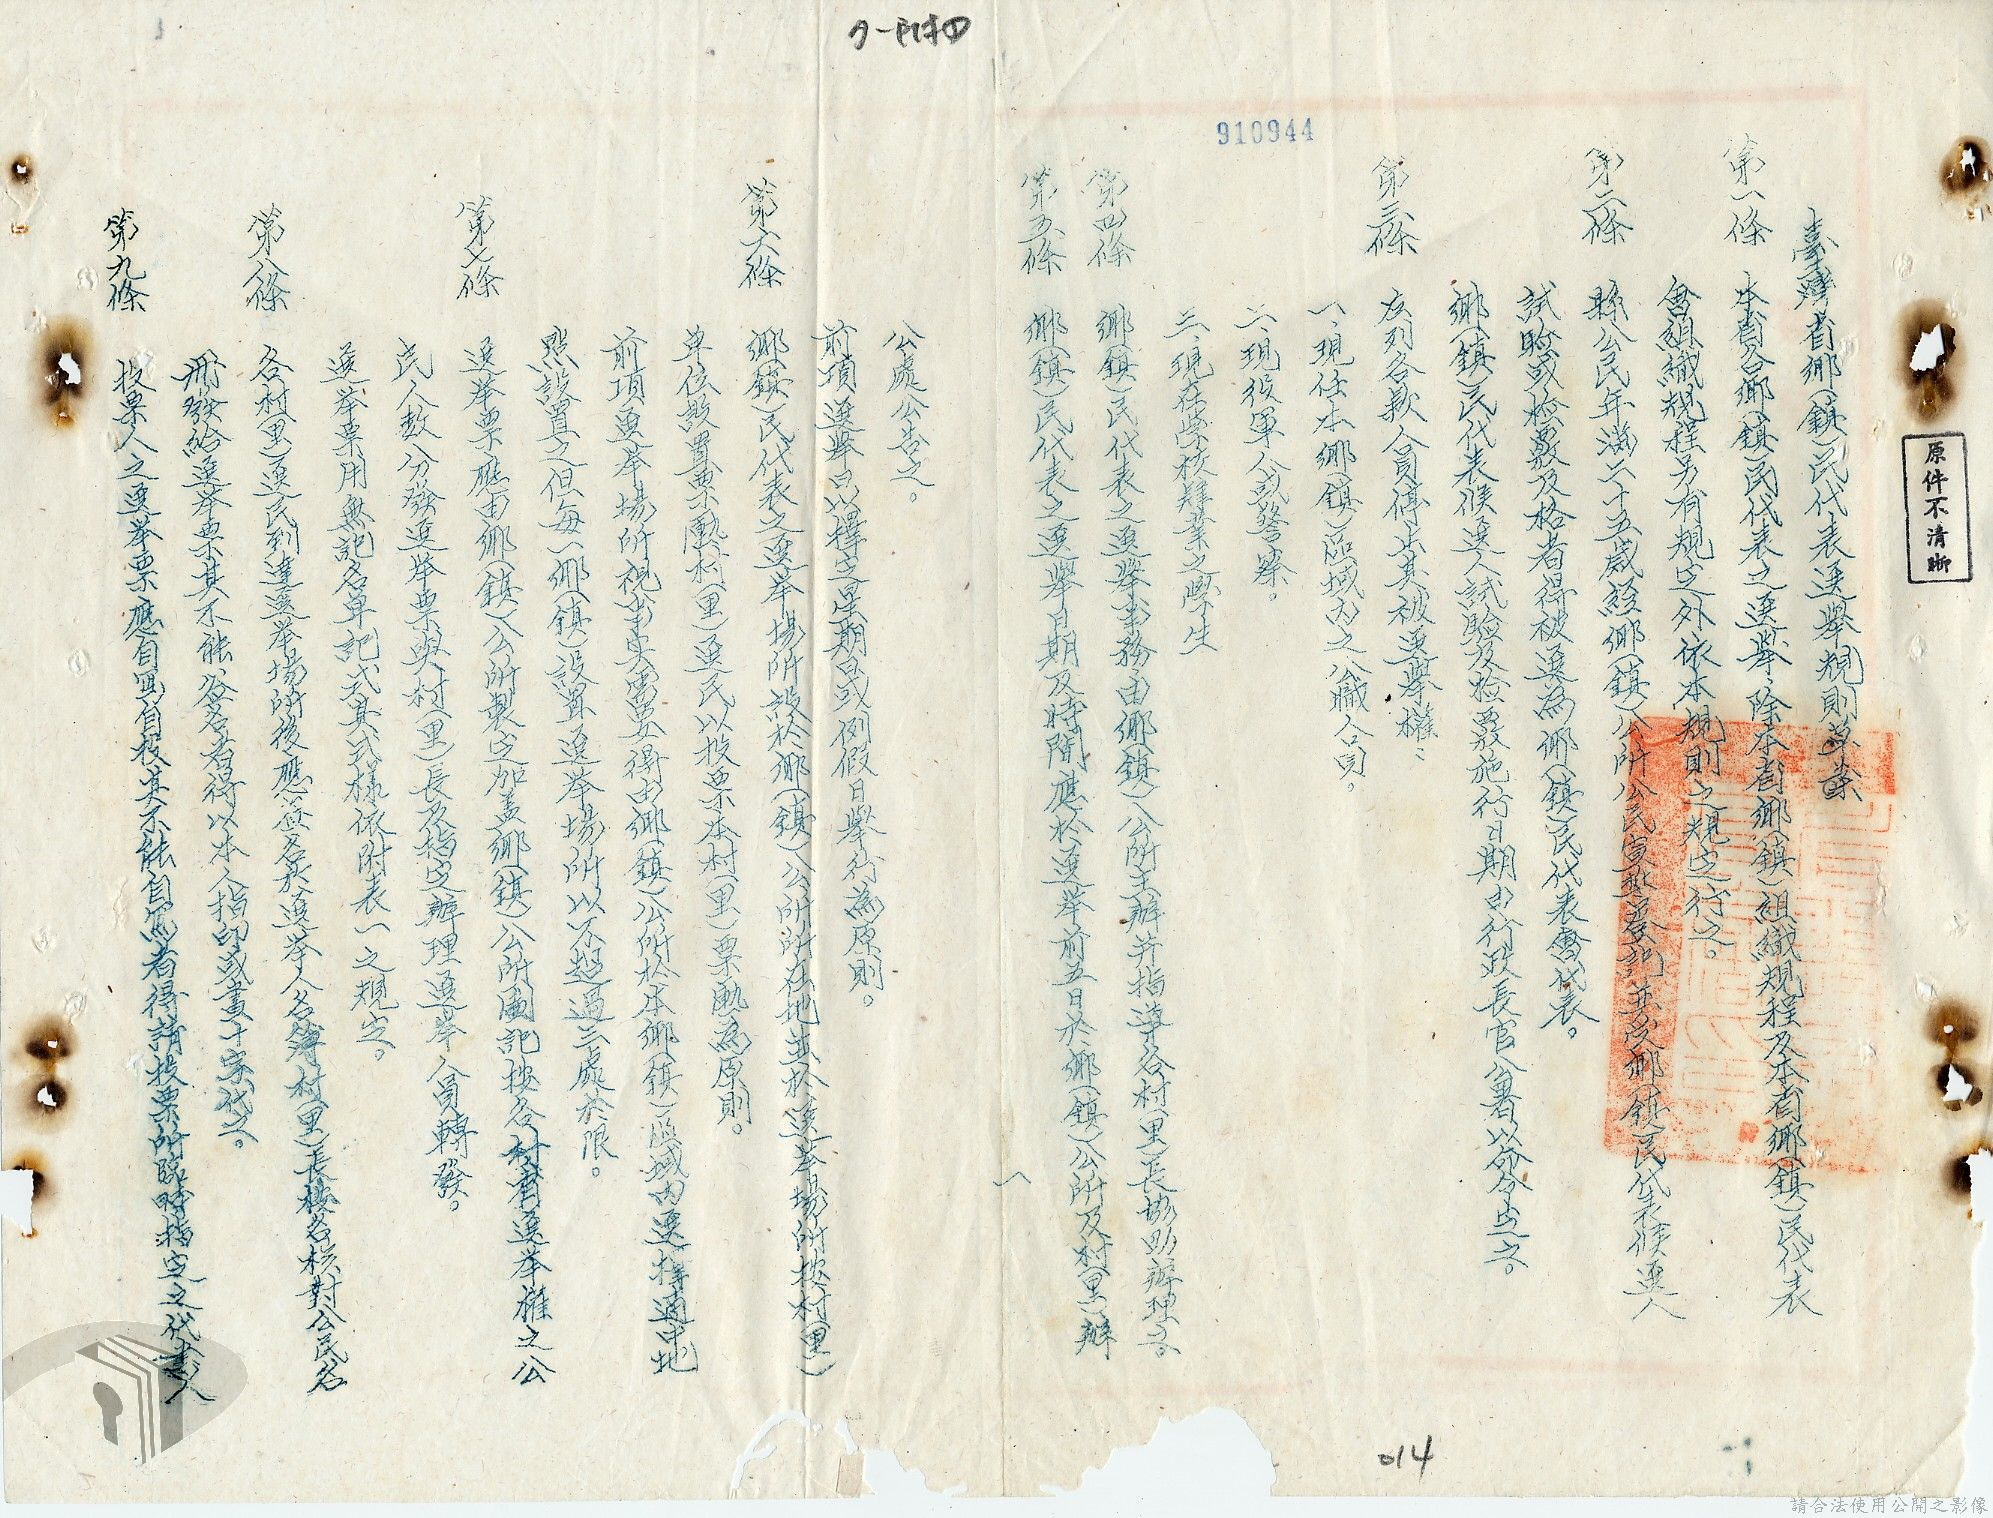 910944
原件不清晰
臺灣省鄉(鎮)民代表選舉規則草案
第一條 本省各鄉(鎮)民代表之選舉、除本省鄉(鎮)組織規程及本省鄉(鎮)民代表
會組織規程另有規定外依本規則之規定行之。
第二條 縣公民年滿二十五歲經鄉(鎮)公所公民宣誓登記並受鄉(鎮)民代表候選人
試驗或檢覈及格者得被選為鄉(鎮)民代表會代表。
鄉(鎮)民代表候選人試驗及檢覈施行日期由行政長官公署以命令定之。
第三條 左列各款人員停止其被選舉權:
一、現任本鄉(鎮)區域內之公職人員。
二、現役軍人或警察。
三、現在學校肄業之學生
第四條 鄉(鎮)民代表之選舉事務由鄉(鎮)公所主辦并指導各村(里)長協助辦理之。
第五條 鄉(鎮)民代表之選舉日期及時間應於選舉前五日於鄉(鎮)公所及村(里)辦
一
公處公告之。
前項選舉日以擇定星期日或例假日舉行為原則。
第六條 鄉(鎮)民代表之選舉場所設於鄉(鎮)公所所在地並於選舉場所按村(里)
單位設置票匭村(里)選民以投票本村(里)票匭為原則。
前項選举場所視事实需要得由鄉(鎮)公所於本鄉(鎮)區域內選擇適中地
點設置之但每一鄉(鎮)設置選举場所以不超過三處於限。
第七條 選举票應由鄉(鎮)公所製定加蓋鄉(鎮)公所圖記按各村有選举權之公
民人數分發選举票與村(里)長及指定辦理選举人員轉發。
選举票用無記名單記式其式樣依附表一之規定。
第八條 各村(里)選民到達選举場所後應簽名於選举人名簿村(里)長按名核對公民名
冊發給選举票其不能簽名者得以本人指印或畫十字代之。
第九條 投票人之選举票應自寫自投其不能自寫者得請投票所臨時指定之代書人
014
請合法使用公開之影像